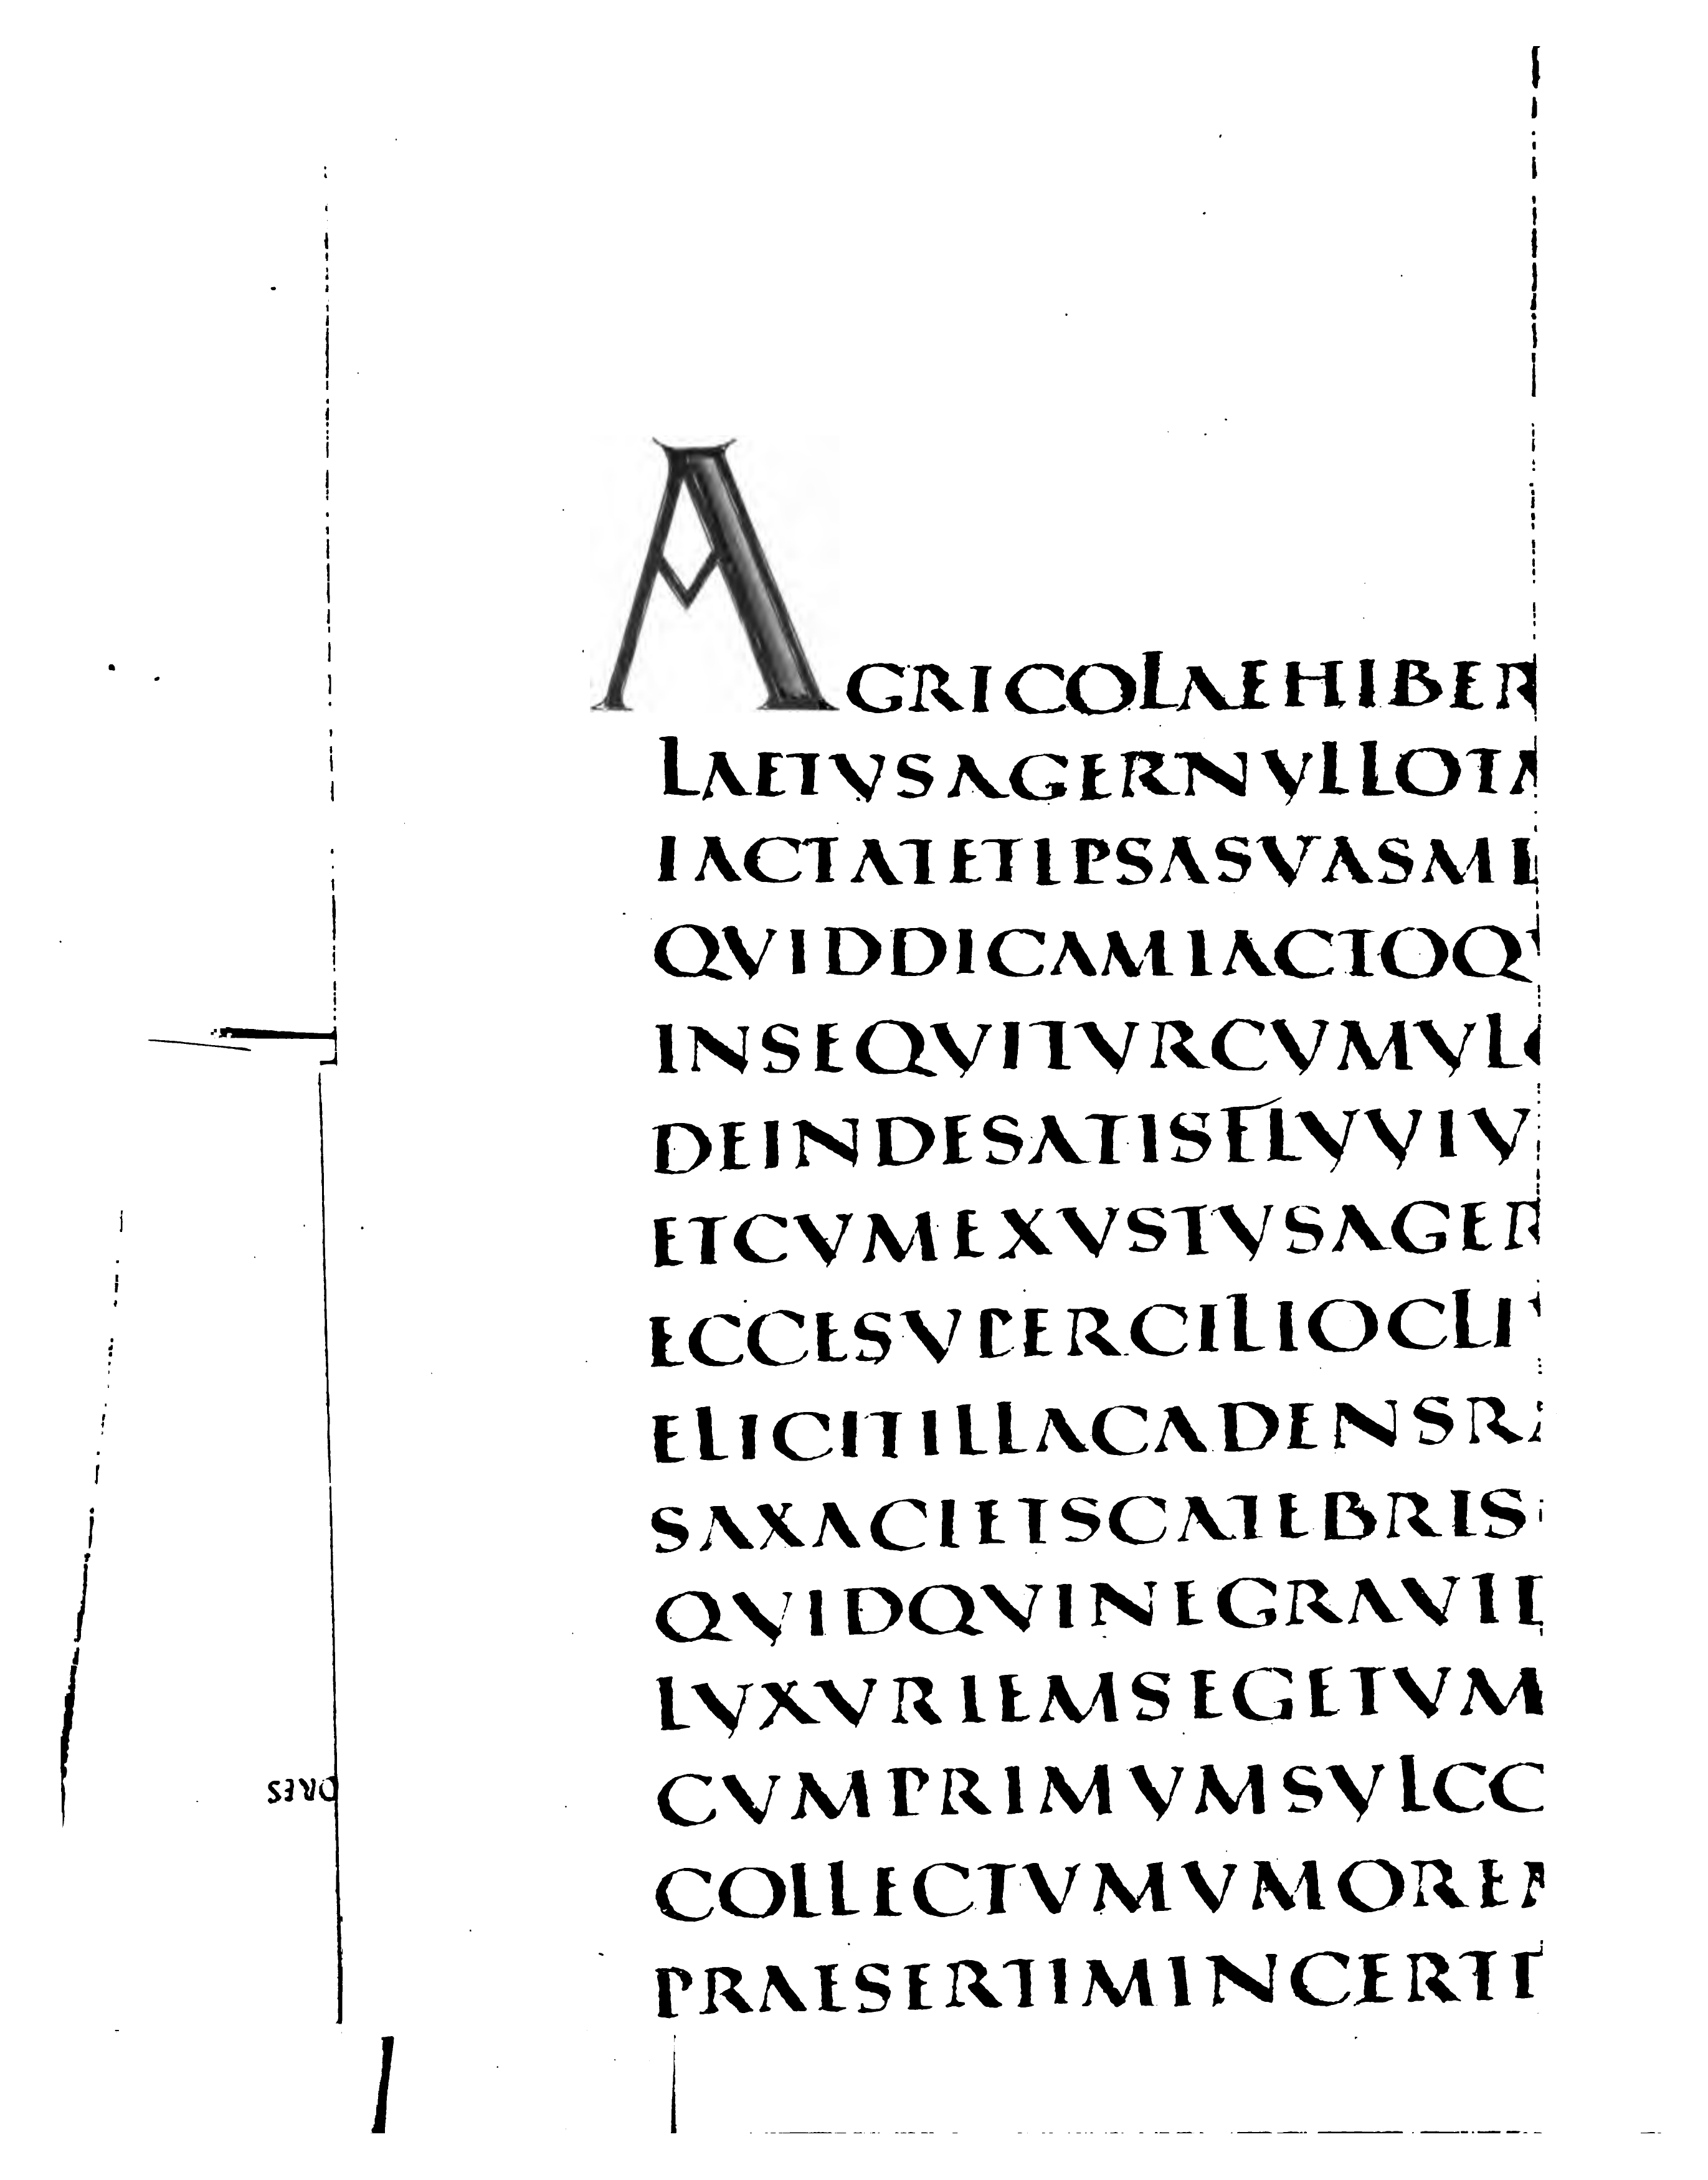 AGRICOLAEHIBER
LAETVSAGERNVLLOTA
IACTATETIPSASVASMI
QVIDDICAMIACTOQV
INSEQVITVRCVMVLO
DEINDESATISFLVVIV
ETCVMEXVSTVSAGER
ECCESVPERCILIOCLI
ELICITILLACADENSRA
SAXACIETSCATEBRIS
QVIDQVINEGRAVID
LVXVRIEMSEGETVM
CVMPRIMVMSVLCO
COLLECTVMVMOREM
PRAESERTIMINCERTI
ORES